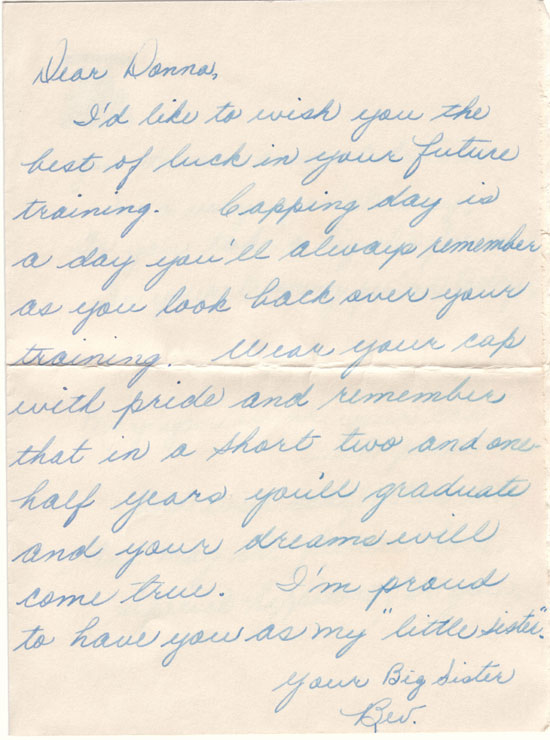 Dear Donna,
I'd like to wish you the
best of luck in your future
training. Capping day is
a day you'll always remember
as you look back over your
training. Wear your cap
with pride and remember
that in a short two and one-
half years you'll graduate
and your dreams will
come true. I'm proud
to have you as my "little sister".
Your Big Sister
Bev.